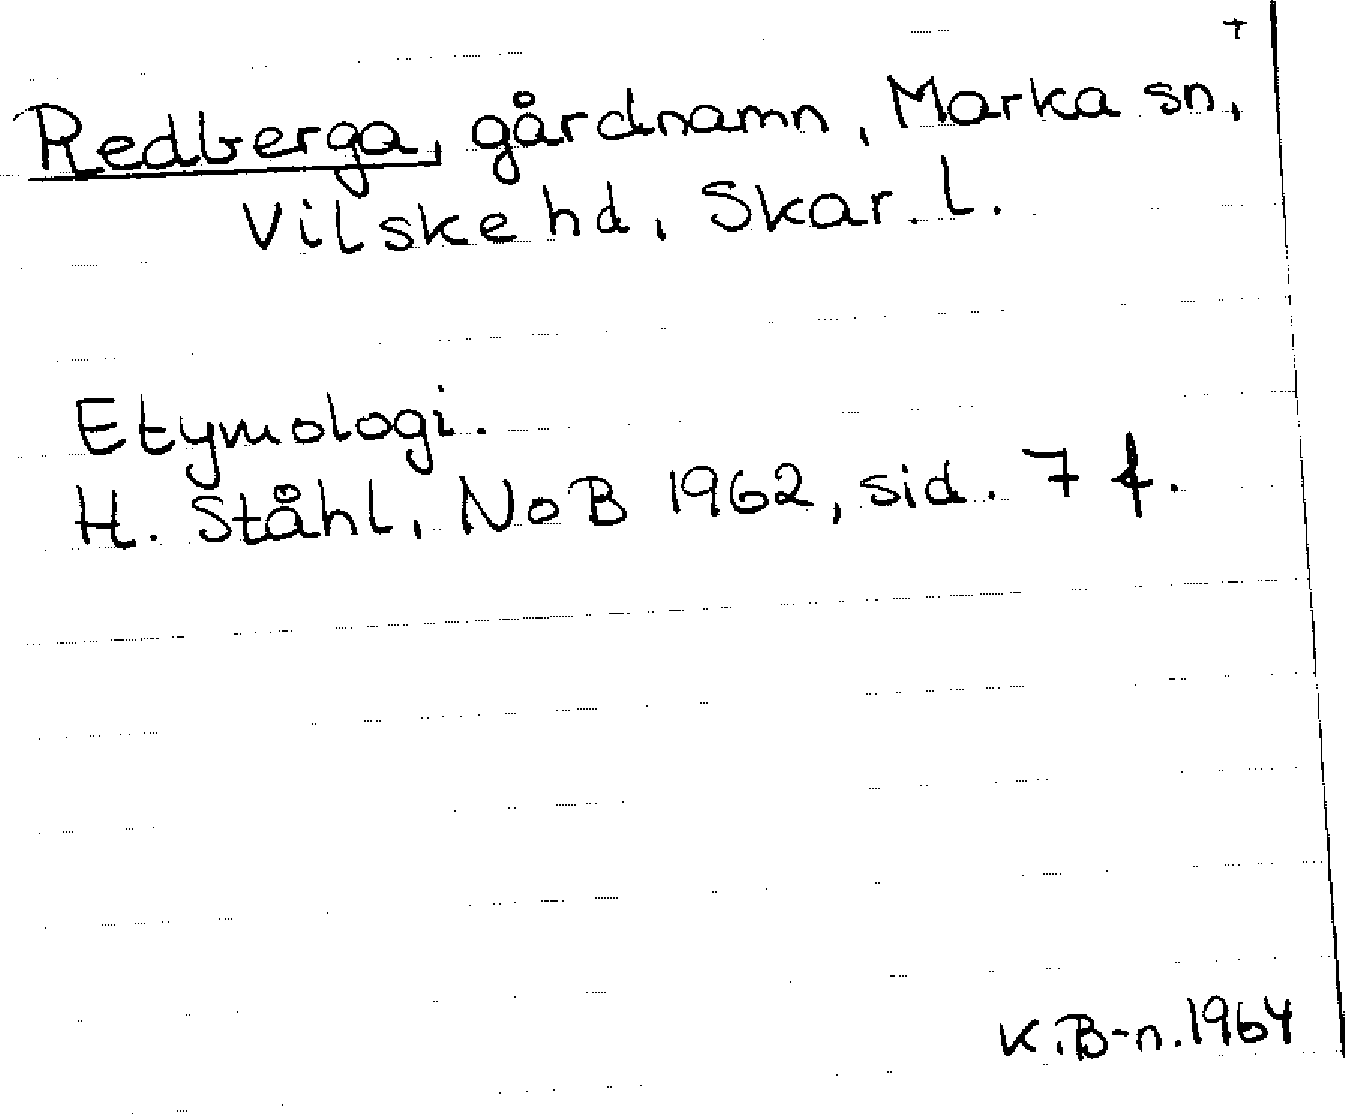 +
Redberga, gårdnamn, Marka sn,
Vilske hd, Skar. l.
Etymologi.
H. Ståhl, NoB 1962, sid. 7 f.
K.B-n.1964